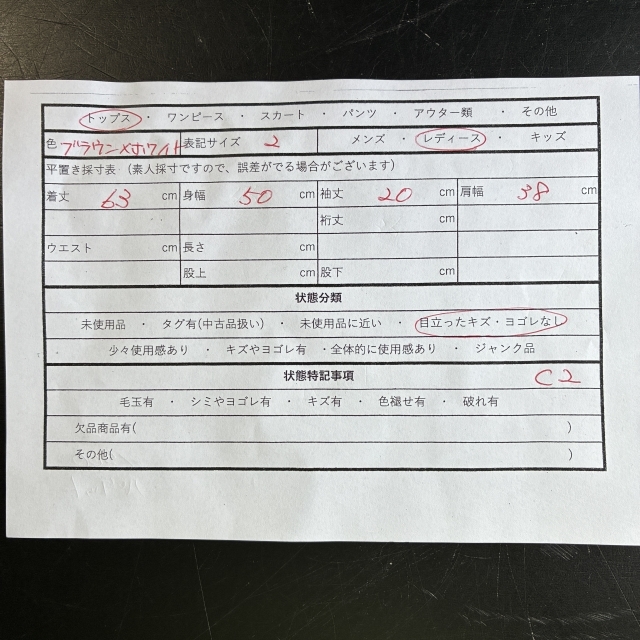 トップス ・ ワンピース ・ スカート ・ パンツ ・ アウター類 ・ その他
色 ブラウン×ホワイト 表記サイズ 2 メンズ ・ レディース ・ キッズ
平置き採寸表 (素人採寸ですので、誤差がでる場合がございます)
着丈 63 cm 身幅 50 cm 袖丈 20 cm 肩幅 38 cm
裄丈 cm
ウエスト cm 長さ cm
股上 cm 股下 cm
状態分類
未使用品 ・ タグ有(中古品扱い) ・ 未使用品に近い ・ 目立ったキズ・ヨゴレなし
・ 少々使用感あり ・ キズやヨゴレ有 ・全体的に使用感あり ・ ジャンク品
状態特記事項 C2
毛玉有 ・ シミやヨゴレ有 ・ キズ有 ・ 色褪せ有 ・ 破れ有
欠品商品有( )
その他( )